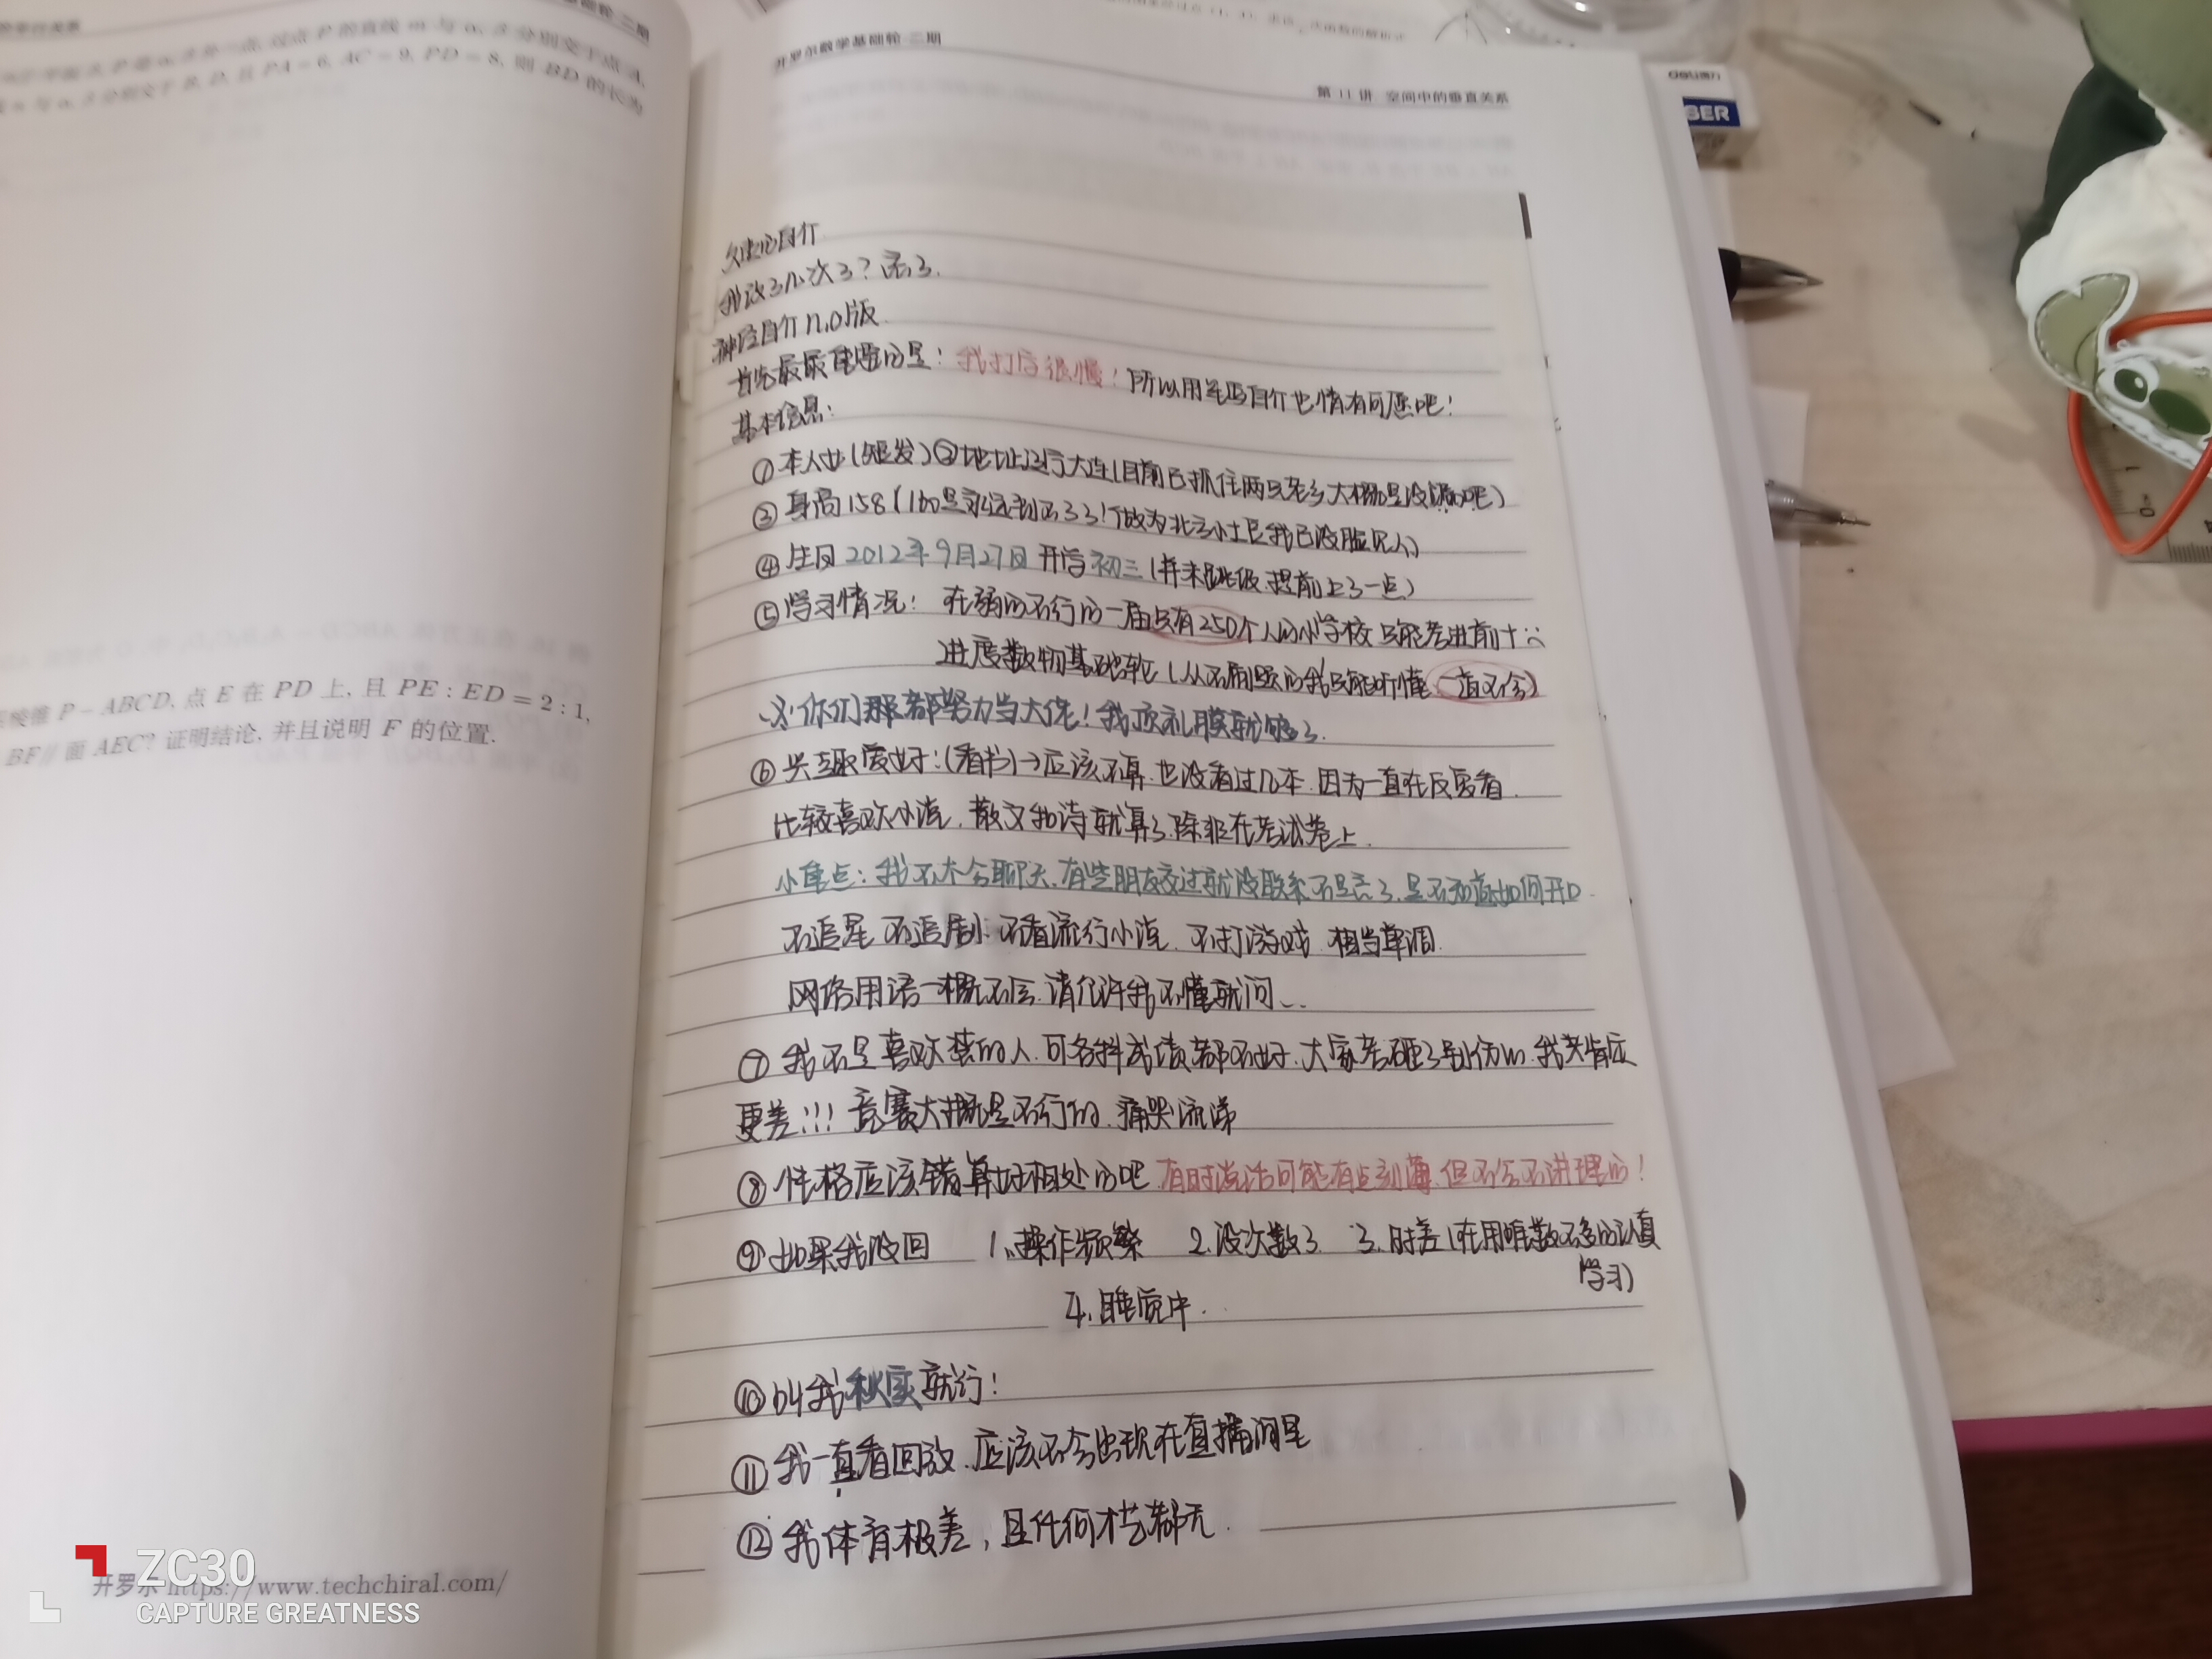 基础轮·二期
点 P 的直线 m 与 α, β 分别交于点 A,
分别交于 B, D, 且 PA = 6, AC = 9, PD = 8, 则 BD 的长为
棱锥 P − ABCD, 点 E 在 PD 上, 且 PE : ED = 2 : 1,
BF // 面 AEC? 证明结论, 并且说明 F 的位置.
开罗尔 https://www.techchiral.com/
ZC30
CAPTURE GREATNESS
开罗尔数学基础轮·二期
第 11 讲 空间中的垂直关系
自介
我改了几次了？忘了.
神经自介n.0版
首先最最重要的是！我打字很慢！所以用笔写自介也情有可原吧！
基本信息：
①本人女(短发)②地址辽宁大连(目前已抓住两只老乡大概是没漏的吧)
③身高158(160是永远到不了了！做为北方小土豆我已没脸见人)
④生日2012年9月27日 开学初三(并未跳级.提前上了一点)
⑤学习情况！在弱的不行的一届只有250个人的小学校只能考进前十六
进度数物基础轮(从不刷题的我只能听懂 一直不会)
你们那都努力当大佬！我顶礼膜就够了.
⑥兴趣爱好：(看书)→应该不算.也没看过几本.因为一直在反复看.
比较喜欢小说.散文和诗就算了.除非在考试卷上.
小重点：我不大会聊天.有些朋友交过就没联系.不是忘了.是不知道如何开口.
不追星 不追剧 不看流行小说.不打游戏.相当单调.
网络用语一概不会.请允许我不懂就问...
⑦我不是喜欢装的人.可各科成绩都不好.大家考砸了别伤心.我肯定
更差!!! 竞赛大概是不行的.痛哭流涕
⑧性格应该错算好相处的吧.有时说话可能有点刻薄.但不会不讲理的！
⑨如果我没回 1.操作频繁 2.没次数了 3.时差(在用唯数不多的认真
学习)
4.睡觉中.
⑩叫我秋实就行！
⑪我一直看回放.应该不会出现在直播间里
⑫我体育极差，且任何才艺都无.